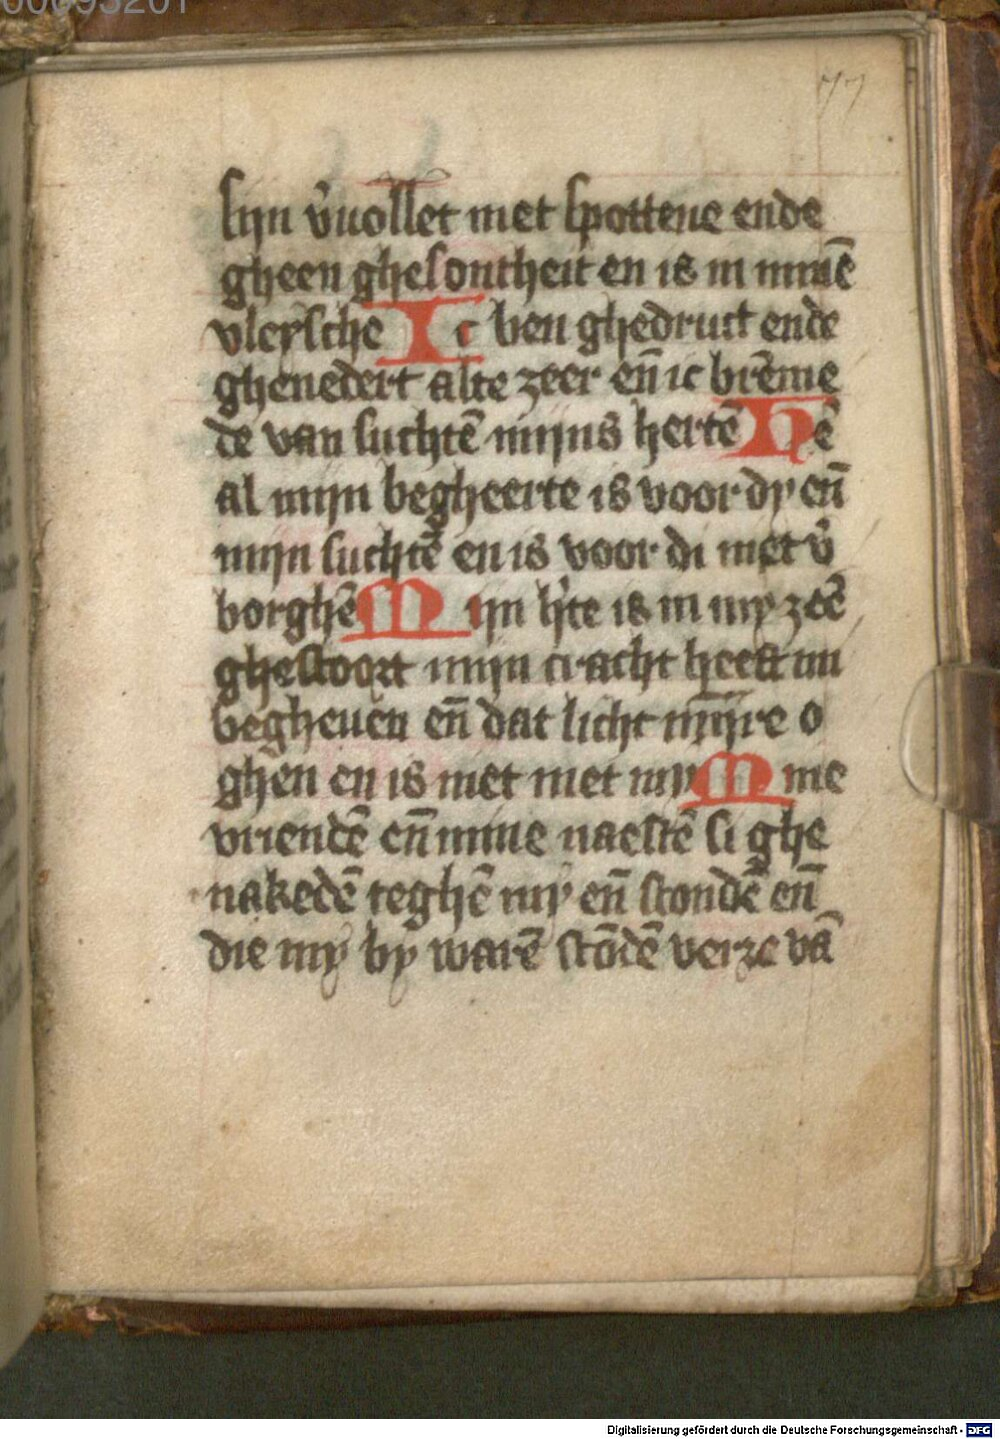 00095201
77
sijn v̄uollet met spottene ende
gheen ghesontheit en is in minē
vleysche Ic ben ghedruct ende
ghenedert alte zeer en̄ ic brēme
de van suchtē mijns hertē Hē
al mijn begheerte is voor dy en̄
mijn suchtē en is voor di niet v̄
borghē Mijn h̄te is in my zeē
ghestoort mijn cracht heeft mi
begheuen en̄ dat licht mijnre o
ghen en is niet met my Mine
vriendē en̄ mine naestē si ghe
nakedē teghē my en̄ stondē en̄
die my by warē stōdē verze vā
Digitalisierung gefördert durch die Deutsche Forschungsgemeinschaft - DFG